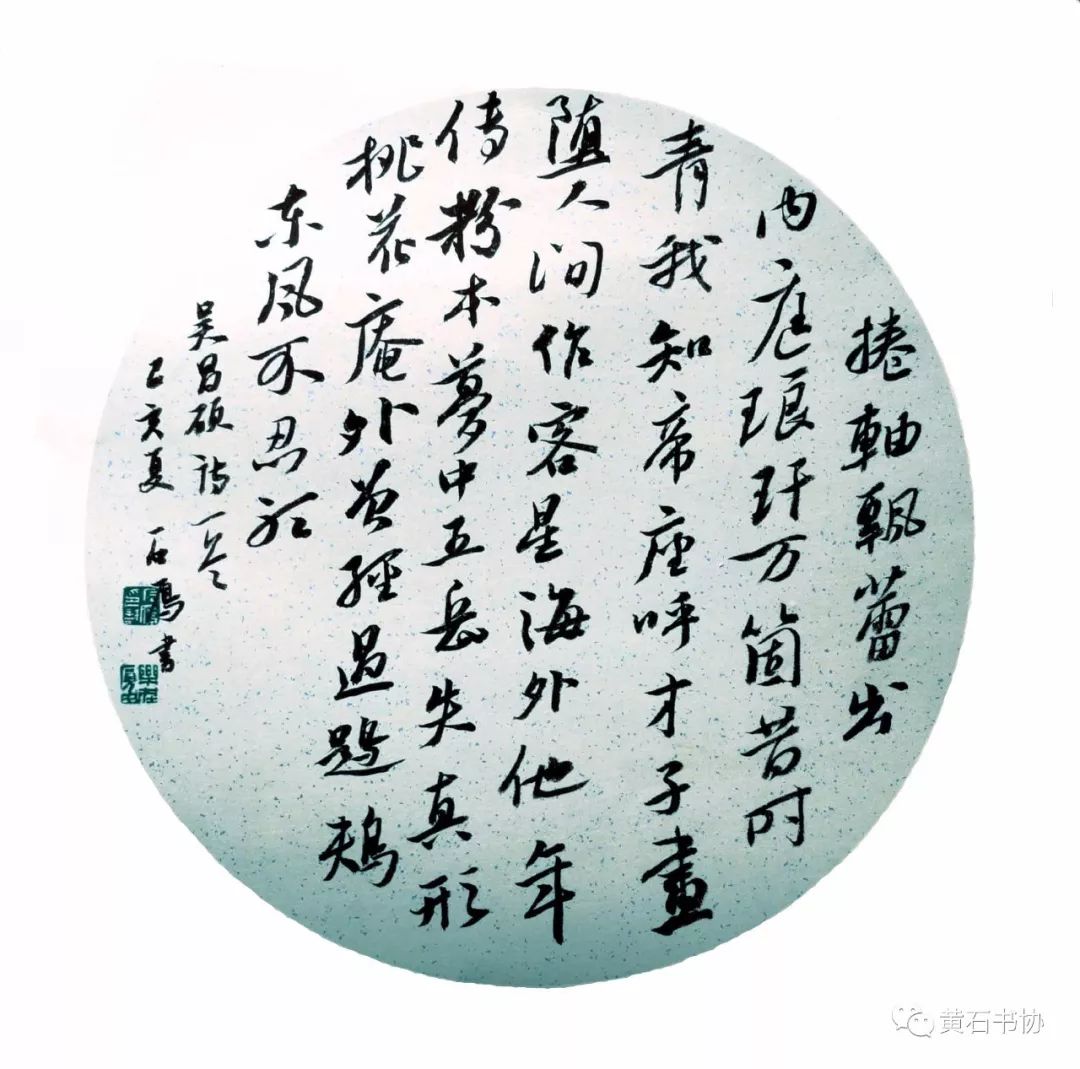 捲軸飄蕭出
内庭琅玕万箇昔时
青我知帝座呼才子畫
堕人间作客星海外他年
傳粉本夢中五岳失真形
桃花庵外曾經過鶗鴂
东风不忍听
吴昌碩詩一首
己亥夏 石書
黄石书协